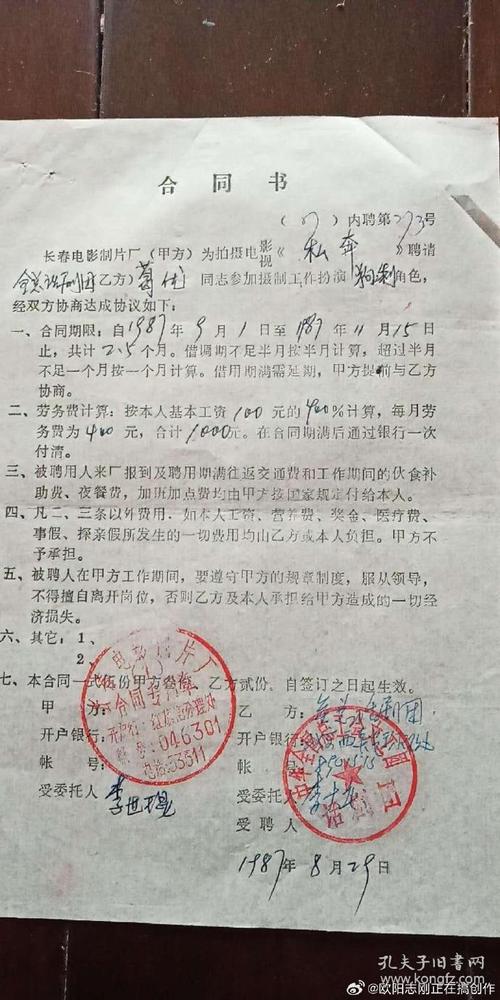 合同书
(87)内聘第273号
长春电影制片厂(甲方)为拍摄电影视《私奔》聘请
全总话剧团(乙方)葛优同志参加摄制工作扮演角色,
经双方协商达成协议如下:
一、合同期限:自1987年9月1日至1987年11月15日
止,共计2.5个月。借调期不足半月按半月计算,超过半月
不足一个月按一个月计算。借用期满需延期,甲方提前与乙方
协商。
二、劳务费计算:按本人基本工资100元的400%计算,每月劳
务费为400元,合计1000元。在合同期满后通过银行一次
付清。
三、被聘用人来厂报到及聘用期满往返交通费和工作期间的伙食补
助费、夜餐费,加班加点费均由甲方按国家规定付给本人。
四、凡二、三条以外费用,如本人工资、营养费、奖金、医疗费、
事假、探亲假所发生的一切费用均由乙方或本人负担。甲方不
予承担。
五、被聘人在甲方工作期间,要遵守甲方的规章制度,服从领导,
不得擅自离开岗位,否则乙方及本人承担给甲方造成的一切经
济损失。
六、其它:1、
2、
七、本合同一式伍份甲方叁份,乙方贰份,自签订之日起生效。
甲方: 乙方:全总话剧团
开户银行: 开户银行:
帐号: 帐号:
受委托人 李世 受委托人
受聘人
1987年8月29日
电影制片厂
合同专用章
046301
电话:53311
孔夫子旧书网
@欧阳志刚正在搞创作